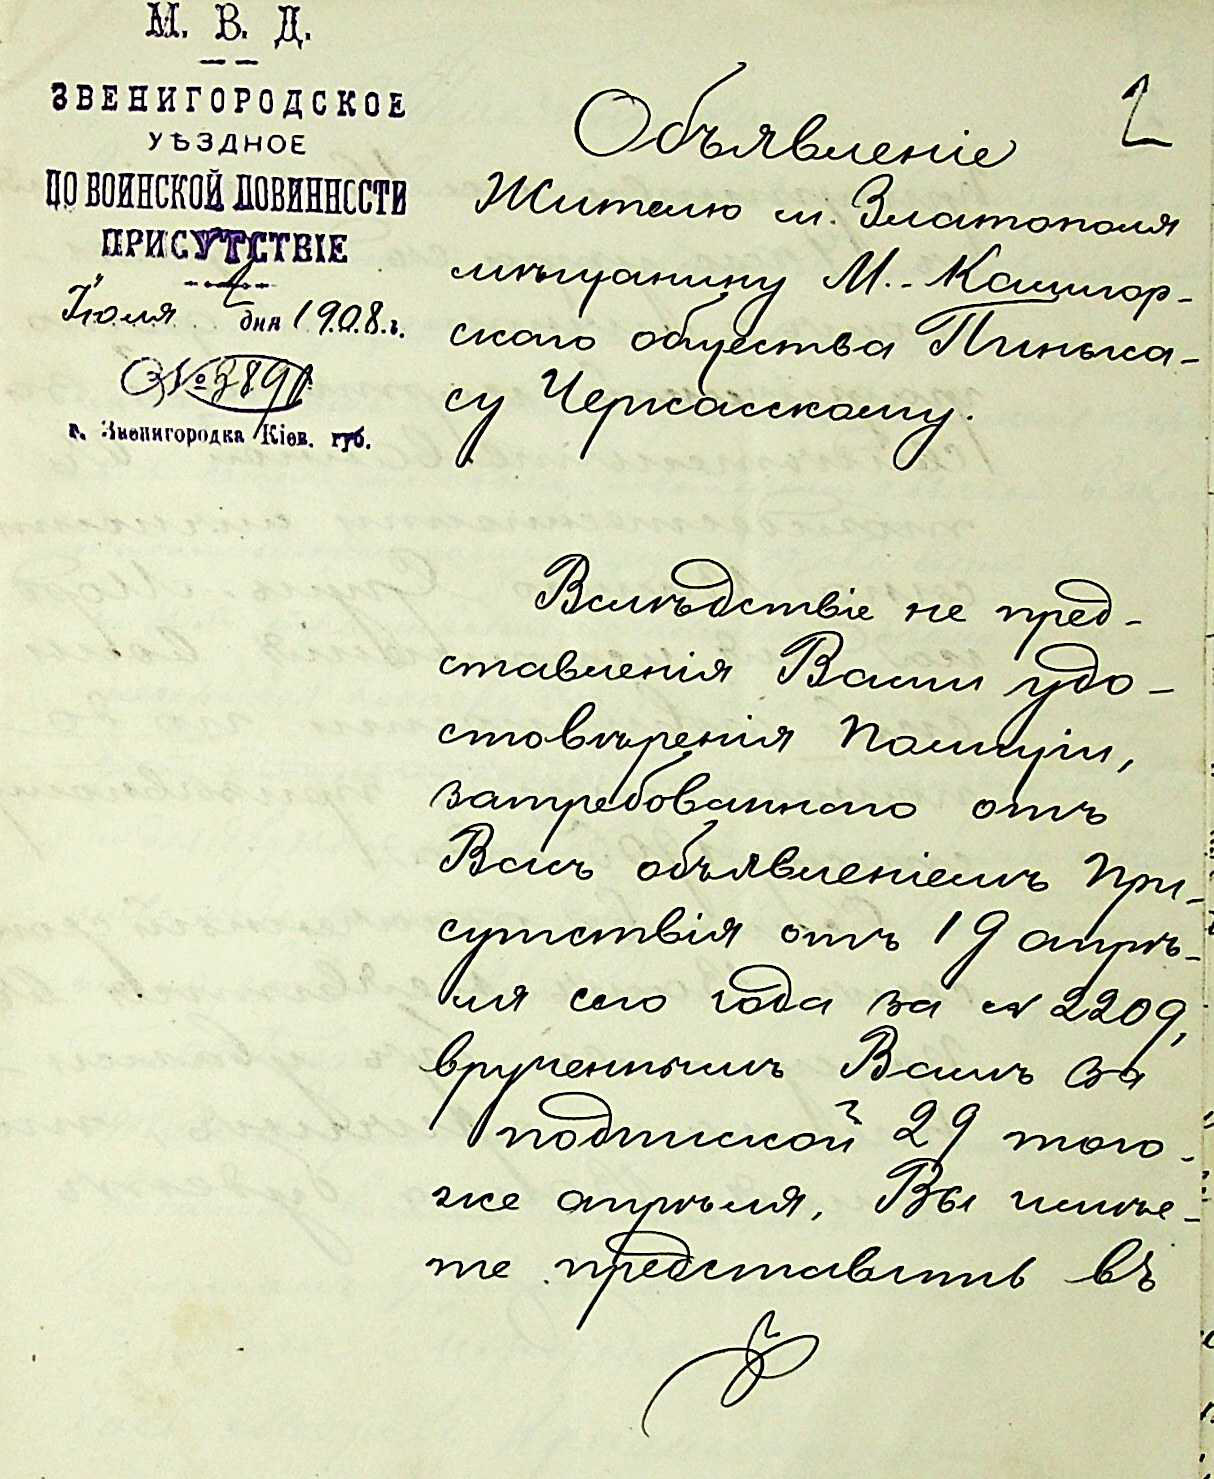 М. В. Д.
ЗВЕНИГОРОДСКОЕ
УѢЗДНОЕ
ПО ВОИНСКОЙ ПОВИННОСТИ
ПРИСУТСТВІЕ
Іюля дня 1908 г.
№ 3891
г. Звенигородка Кіев. губ.
2
Объявленіе
Жителю м. Златополя
мѣщанину М.-Кашгор-
скаго общества Пинька-
су Черкасскому.
Вслѣдствіе не пред-
ставленія Вами удо-
стовѣренія Полиціи,
затребованнаго отъ
Васъ объявленіемъ При-
сутствія отъ 19 апрѣ-
ля сего года за № 2209,
врученнымъ Вамъ за
подпиской 29 того-
же апрѣля, Вы имѣе-
те представить въ